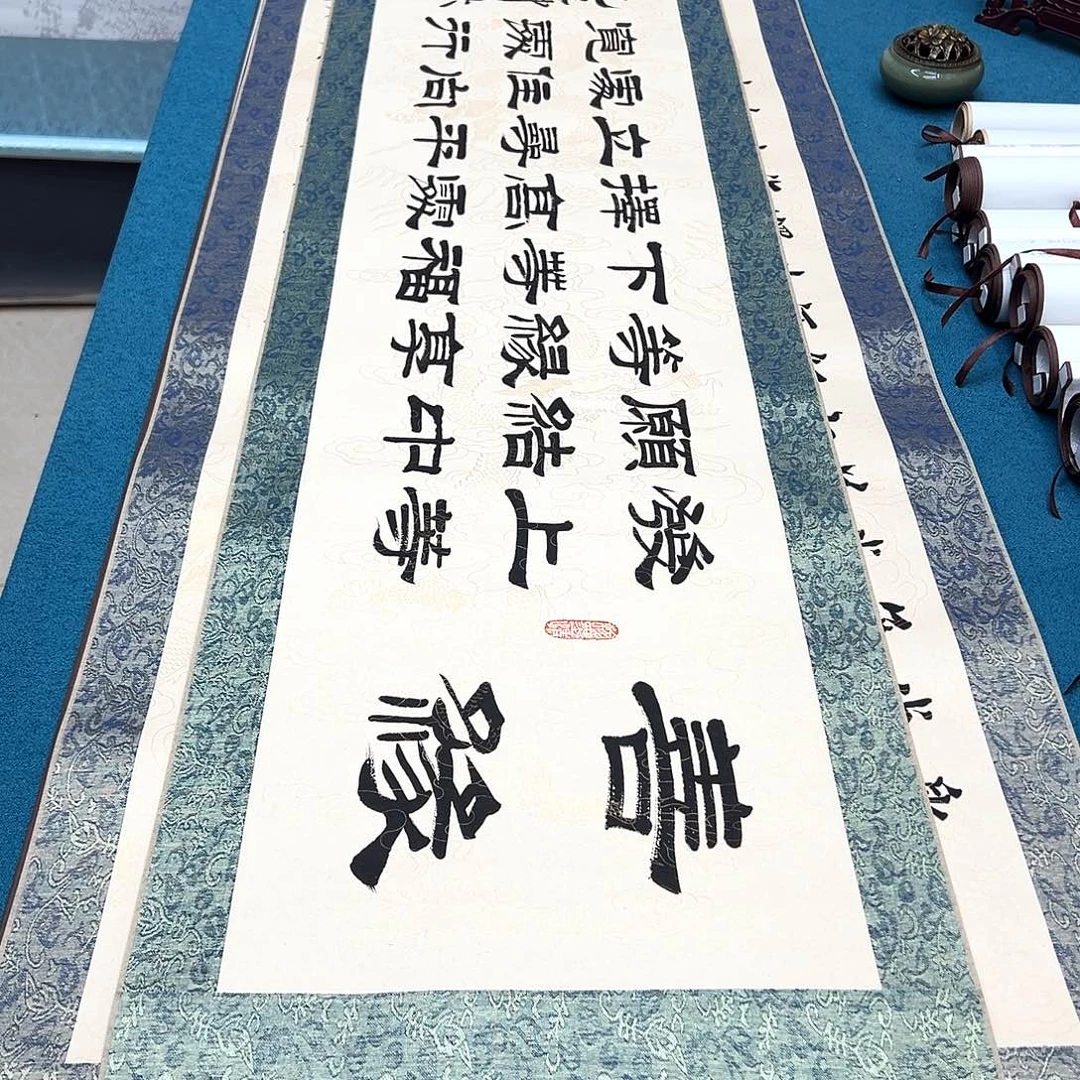 善緣
發上等
願結中
等緣享
下等福
擇高處
立尋平
處住向
寬處行